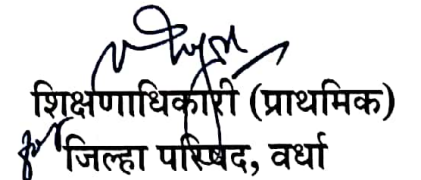 शिक्षणाधिकारी (प्राथमिक)
जिल्हा परिषद, वर्धा